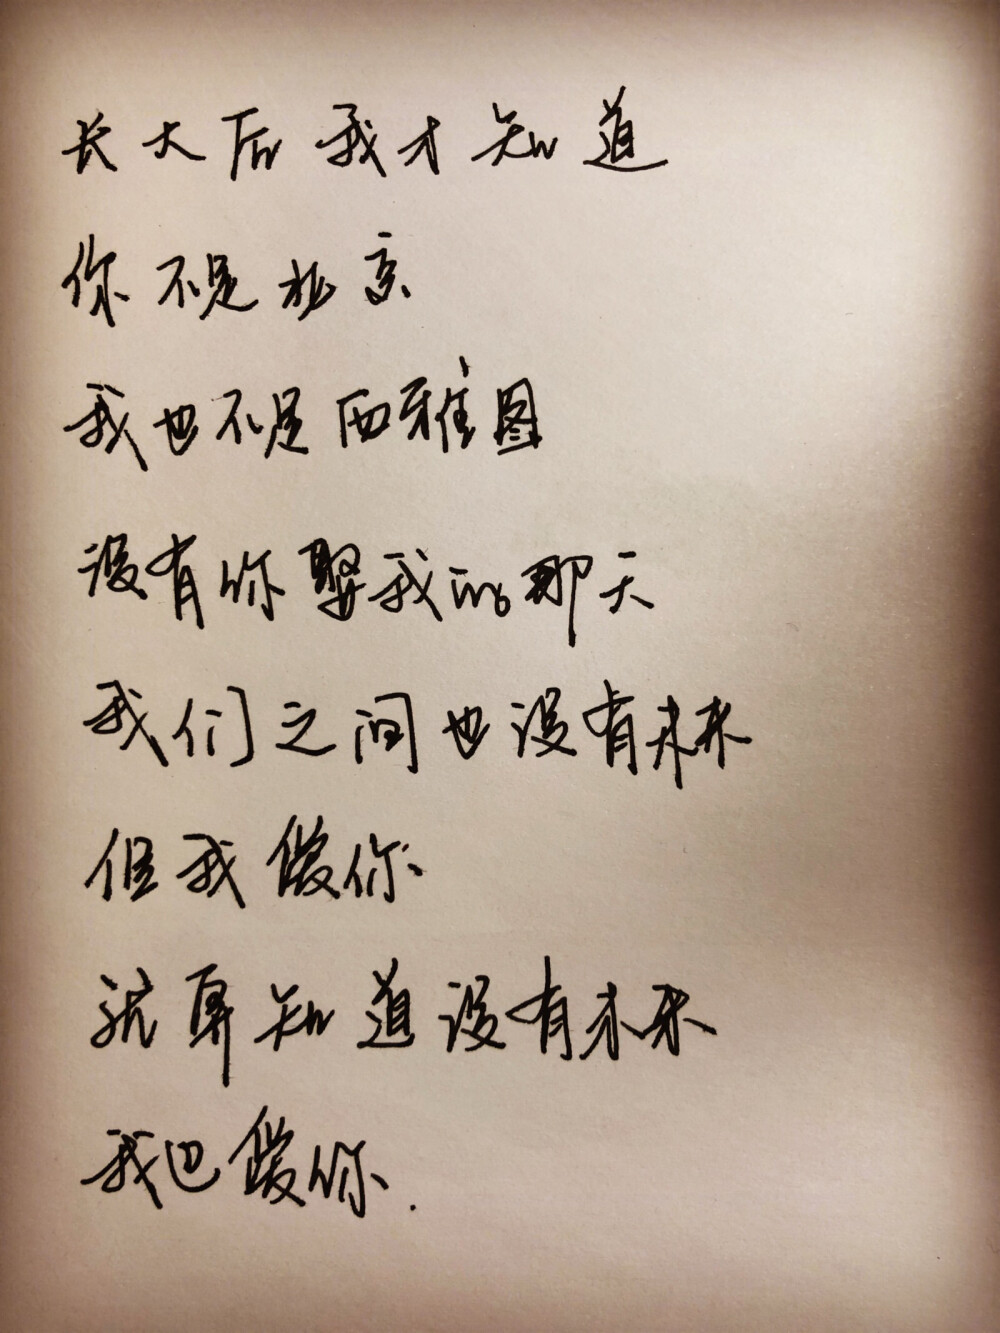 长大后我才知道
你不是北京
我也不是西雅图
没有你娶我的那天
我们之间也没有未来
但我愛你
就算知道没有未来
我也愛你.